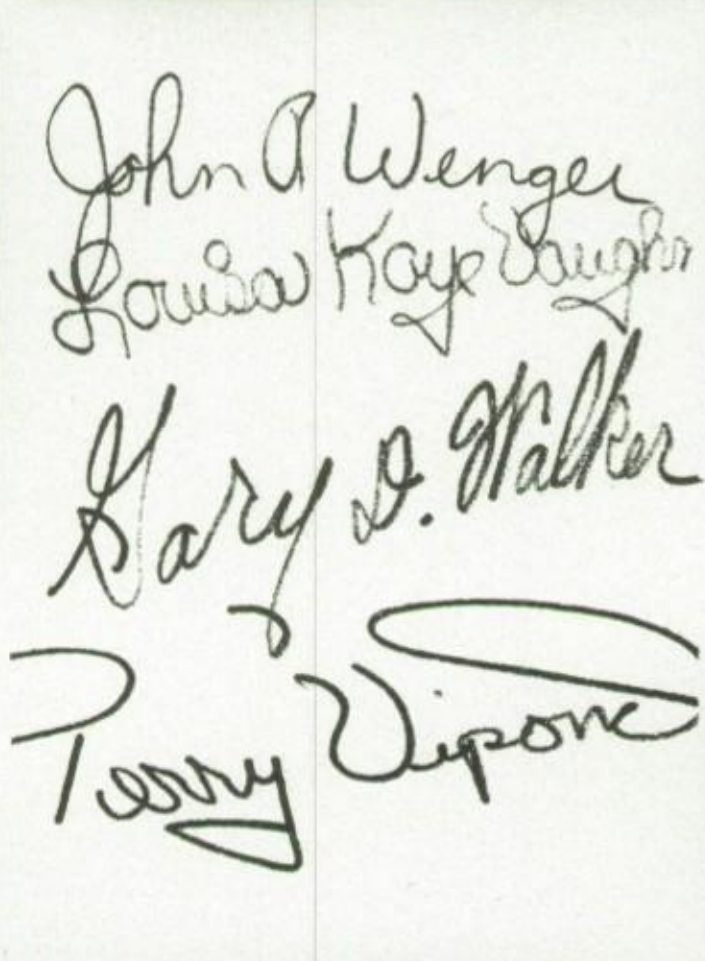 John A Wenger
Louisa Kaye Vaughn
Gary D. Walker
Perry Vipond